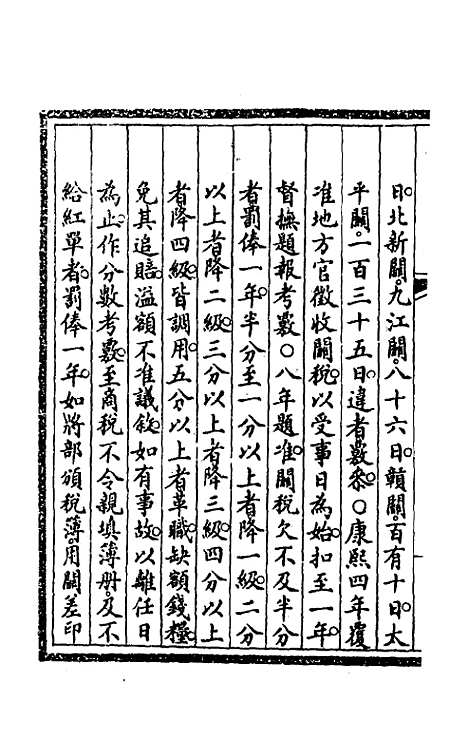 日。北新關。九江關。八十六日。贛關。百有十日。太
平關。一百三十五日。違者覈叅。○康熙四年覆
准地方官徵收關稅。以受事日為始。扣至一年。
督撫題報考覈。○八年題准。關稅欠不及半分
者罰俸一年。半分至一分以上者降一級。二分
以上者降二級。三分以上者降三級。四分以上
者降四級。皆調用。五分以上者革職。缺額錢糧。
免其追賠。溢額不准議敘。如有事故。以離任日
為止。作分數考覈。至商稅不令親填簿册。及不
給紅單者。罰俸一年。如將部頒稅簿。用關差印